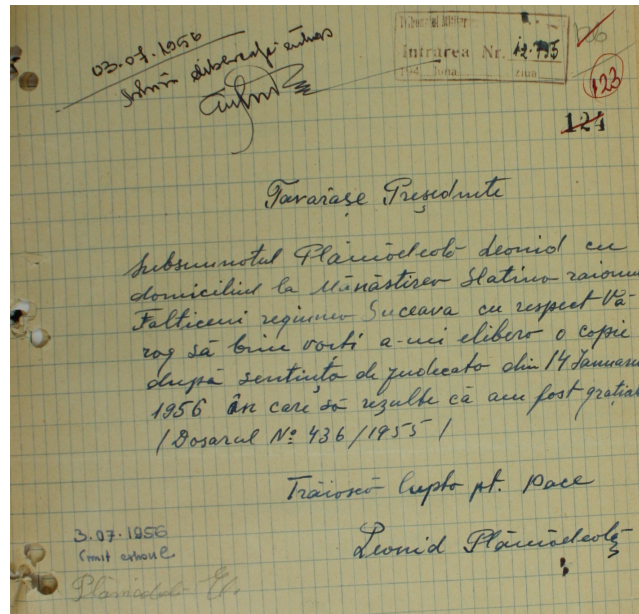 03.07.1956
Tribunalul Militar
Intrarea Nr. 12.795
194 luna ziua
123
124
Tavarăşe Preşedinte
Subsumnotul Plămădeolă Leonid cu
domiciliul la Mănăstirea Slatina raionul
Falticeni regiunea Suceava cu respect Vă
rog să bine voiti a-mi elibera o copie
după sentinţa de judecato din 14 Januarie
1956 în care să rezulte că am fost graţiat
/ Dosarul № 436/1955 /
Trăioscă lupta pt. Pace
3.07.1956
Leonid Plămădeolă